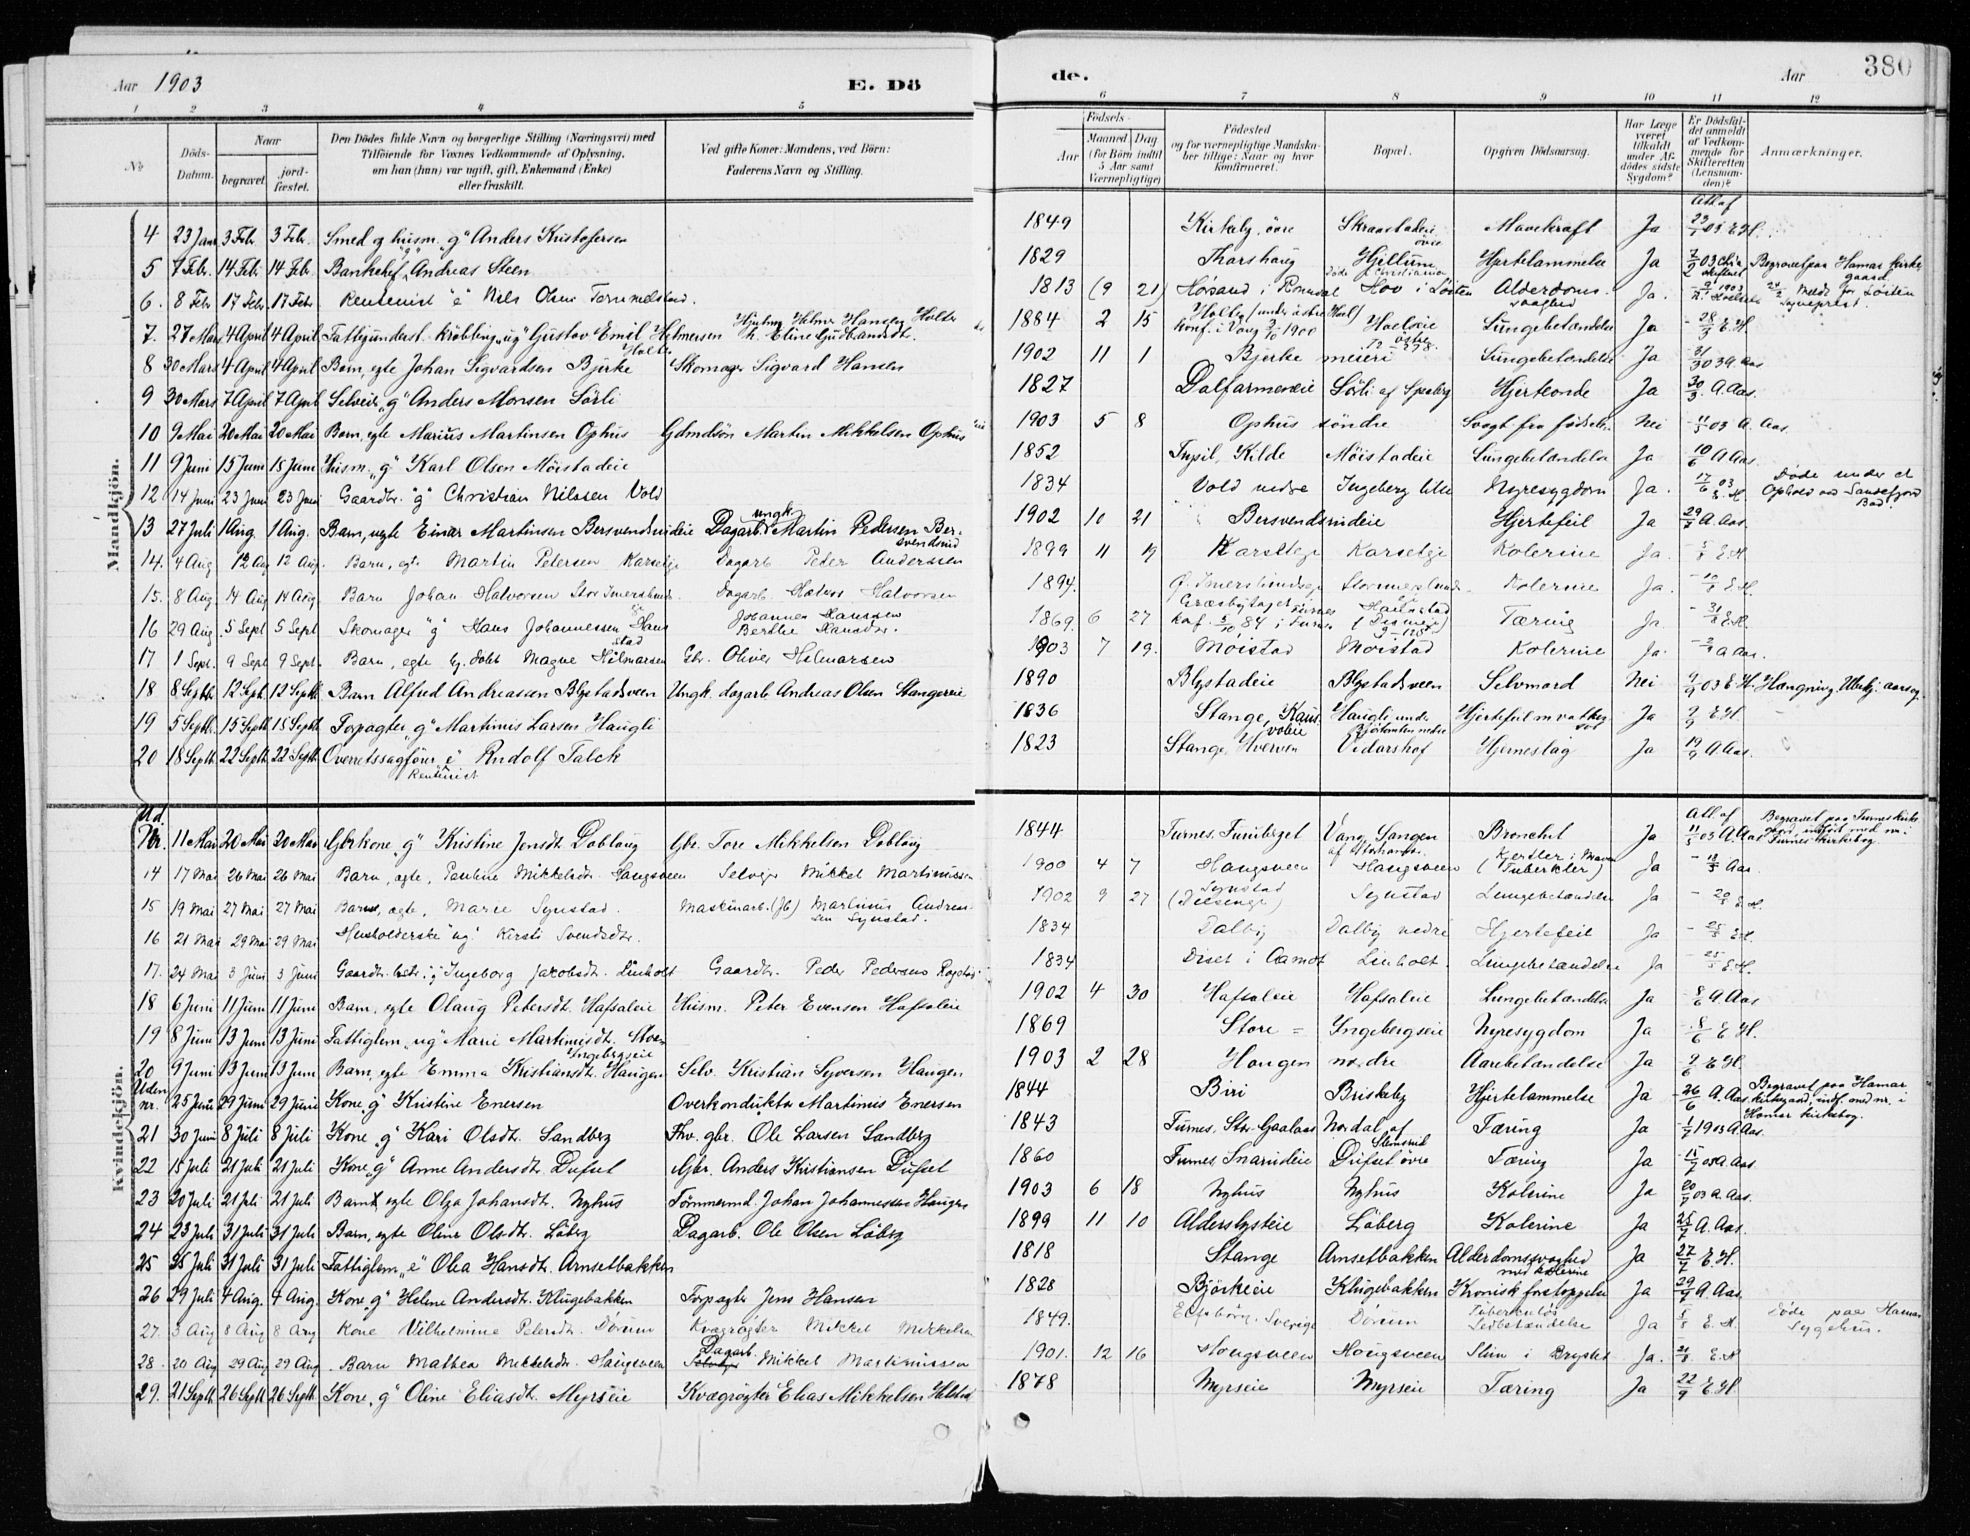 Aar 1903 E. Dö de. Aar 380
1 2 3 4 5 6 7 8 9 10 11 12
№ Döds-Datum. Naar begravet. jordfæstet. Den Dödes fulde Navn og borgerlige Stilling (Næringsvei) med Tilföiende for Voxnes Vedkommende af Oplysning, om han (hun) var ugift, gift, Enkemand (Enke) eller fraskilt. Ved gifte Koner: Mandens, ved Börn: Faderens Navn og Stilling. Födsels- Aar Maaned Dag (for Börn indtil 5 Aar samt Værnepligtige) Födested og for værnepligtige Mandskaber tillige: Naar og hvor Konfirmeret. Bopæl. Opgiven Dödsaarsag. Har Læge været tilkaldt under Afdödes sidste Sygdom? Er Dödsfaldet anmeldt af Vedkommende for Skifteretten (Lensmanden)? Anmærkninger.
Mandkjön.
Att af
4 23 Jan 3 Febr. 3 Febr. Smed og husm. "g" Anders Kristofersen 1849 Kirkeby, övre Skraastadeie övre Mavekræft Ja 23/1 03 E.H.
5 7 Febr. 14 Febr. 14 Febr. Bankchef "g" Andreas Steen 1829 Thorshaug Hjellum Døde i Christiania Hjertelammelse Ja Begravet paa Hamar Kirkegaard
6. 8 Febr 17 Febr. 17 Febr. Rentenist "e" Nils Olsen Tommelstad. 1813 (9 21) Hov i Løiten Alderdomssvaghed Ja.
7. 27 Mars 4 April 4 April Fattigunderst. Krøbling "ug" Gustav Emil Hilmersen Holte Hjelmer Hansen Holte h. Eline Gudbrandsdt. 1884 2 15 konf. i Vang 1900 Lungebetændelse Ja 28/3 E.H.
8 30 Mars 4 April 4 April Barn, egte Johan Sigvardsen Bjerke Skomager Sigvard Hansen 1902 11 1 Bjerke meieri Lungebetændelse Ja 31/3 03 A Aas
9 30 Mars 7 April 7 April Selveier "g" Anders Monsen Sörli 1827 Dalfarmeneie Sörli af Spaberg Hjerteonde Ja 30/3. A. Aas.
10 9 Mai 20 Mai 20 Mai Barn, egte Marius Martinsen Ophus Gdmdsön Martin Mikkelsen Ophus 1903 5 8 Ophus söndre Svagt fra födselen Nei 11/5 03 A. Aas.
11 9 Juni 15 Juni 15 Juni Husm. "g" Karl Olsen Möistadeie 1852 Tufsil, Kilde Möistadeie Lungebetændelse Ja 10/6 A Aas.
12 14 Juni 23 Juni 23 Juni Gaardbr. "g" Christian Nilssen Vold 1834 Vold nedre Ingeberg lille Nyresygdom Ja. 17/6 03 E.H. Døde under et Ophold ved Sandefjord Bad.
13 27 Juli 1 Aug. 1 Aug. Barn, uegte Einar Martinsen Bersvendsrudeie ungk. Dagarb. Martin Pedersen Bersvendsrud 1902 10 21 Bersvendsrudeie Hjertefeil Ja 29/7 A Aas.
14. 4 Aug 12 Aug 12 Aug. Barn, egte Martin Petersen Karseteje Dagarb Peder Anderssen 1899 11 19 Karseteje Karseteje Kolerine Ja. 5/8 E.H.
15. 8 Aug 14 Aug 14 Aug. Barn Johan Halvorsen Store Imerslund Dagarb. Halvorsen 1894. Kolerine Ja. 10/8 E.H.
16 29 Aug. 5 Sept 5 Sept Skomager "g" Hans Johannessen Johannes Hanssen Berthe Hansdtr. 1869. 6 27 Græsbytaget Furnes konf. 5/10 84 i Furnes Tæring Ja 31/8 E.H.
17 1 Sept. 9 Sept 9 Sept. Barn, egte hj. døbt Magne Hilmarsen Gbr. Oliver Hilmarsen 1903 7 19. Møistad Møistad Kolerine Ja. 2/9 A Aas.
18 8 Septb. 12 Septb. 12 Septb. Barn Alfred Andreassen Blystadsveen Ungk. dagarb Andreas Olsen Stangeeie 1890 Blystadeie Blystadsveen Selvmord Nei 9/9 03 E.H. Hængning, Ubekj. aarsag.
19 5 Septb. 15 Septb 15 Septb Forpagter "g" Martinus Larsen Haugli 1836 Stange, Haugli under Hjertefeil m vattersot Ja 7/9 E.H.
20 18 Septb. 22 Septb 22 Septb Overretssagfører "e" Rudolf Falck Rentenist 1823 Stange, Hverven Vidarshof Hjerneslag Ja 19/9 A. Aas.
Kvindekjön.
Att af
Ud. Nr. 11 Mai 20 Mai 20 Mai Gbrkone "g" Kristine Jensdt Dobloug Gbr. Tore Mikkelsen Dobloug 1844 Furnes, Furuberget Vang, Sangen Bronchit Ja 11/5 03 A. Aas Begravet paa Furnes kirkegaard, indført med nr. i Furnes kirkebog.
14 17 Mai 26 Mai 26 Mai Barn, egte, Pauline Mikkelsdtr. Haugsveen Selveje Mikkel Martinussen 1900 4 7 Haugsveen Haugsveen Kjertler i Maven (Tuberkler) Ja 18/5 Aas.
15 19 Mai 27 Mai 27 Mai Barn, egte, Marie Synstad. Maskinarb. (Jb) Martinius Andreassen Synstad. 1902 9 27 Synstad Synstad Lungebetændelse Ja 20/5 E.H.
16 21 Mai 29 Mai 29 Mai Husholderske "ug" Kirsti Svendsdtr. 1834 Dalby Dalby nedre Hjertefeil Ja 25/5 E.H.
17. 24 Mai 3 Juni 3 Juni Ingeborg Jakobsdtr. Linholt Gaardbr. Peder Pedersen 1834 Diset i Aamot Linholt. Lungebetændelse Ja 25/5 E.H.
18 6 Juni 11 Juni 11 Juni Barn, egte Olaug Petersdt. Hafsaleie Husm. Peter Evensen Hafsaleie 1902 4 30 Hafsaleie Hafsaleie Lungebetændelse Ja 8/6 A Aas.
19 8 Juni 13 Juni 13 Juni Fattiglem "ug" Marie Martinusdt. Store Ingebergseie 1869 Store = Yngebergseie Nyresygdom Ja 8/6 E.H.
20 9 Juni 13 Juni 13 Juni Barn, egte Emma Kristiansdt. Haugen Selv. Kristian Syversen Haugen 1903 2 28 Haugen nordre Aarebetændelse Ja 9/6 E.H.
Uden nr. 25 Juni 29 Juni 29 Juni Kone "g" Kristine Enersen Overkonduktør Martinius Enersen 1844 Biri Briskeby Hjertelammelse Ja 26/6 A. Aas. Begravet paa Hamar kirkegaard, indf. med nr. i Hamar kirkebog.
21 30 Juni 8 Juli 8 Juli Kone "g" Kari Olsdt. Sandberg Fhv. gbr. Ole Larsen Sandberg 1843 Furnes, Str. Gaalaas Nordal af Stensrud Tæring Ja 1/7 1903 A Aas.
22 15 Juli 21 Juli 21 Juli Kone "g" Anne Andersdt. Dufset Gbr. Anders Kristiansen Dufset 1860 Furnes, Snarudeie Dufset övre Tæring Ja 15/7 03 A. Aas.
23 20 Juli 21 Juli 21 Juli Barn, egte Olga Johansdt. Nyhus Tømmermd. Johan Johannessen Haugen 1903 6 18 Nyhus Nyhus Kolerine Ja 20/7 03 A Aas.
24 23 Juli 31 Juli 31 Juli Barn, egte Oline Olsdt. Löberg Dagarb. Ole Olsen Löberg 1899 11 10 Alderslysteie Löberg Kolerine Ja 25/7 A. Aas.
25 25 Juli 31 Juli 31 Juli Fattiglem "e" Olea Hansdt. Arnsetbakken 1818 Stange Arnsetbakken Alderdomssvaghed med kolerine Ja 27/7 E.H.
26 29 Juli 4 Aug. 4 Aug. Kone "g" Helene Andersdt. Klugebakken Forpagter Jens Hansen 1828 Björkeeie Klugebakken Kronisk forstoppelse Ja 29/7 A Aas.
27. 3 Aug 8 Aug 8 Aug Kone Vilhelmine Petersdtr. Dørum Kvægrøgter Mikkel Mikkelsen 1849. Elfsborg, Sverige Dørum Tuberkuløs Ledbetændelse Ja 5/8 E.H. Døde paa Hamar Sygehus.
28. 20 Aug 29 Aug 29 Aug Barn Mathea Mikkelsdtr. Haugsveen Dagarb. Mikkel Martinussen 1901. 12 16 Haugsveen Haugsveen Slim i Brystet Ja. 21/8 E.H
29. 21 Septb. 26 Septb 26 Septb Kone "g" Oline Eliasdt. Myrseie Kvægrögter Elias Mikkelsen Hilstad 1878 Myrseie Myrseie Tæring Ja 22/9 E.H.